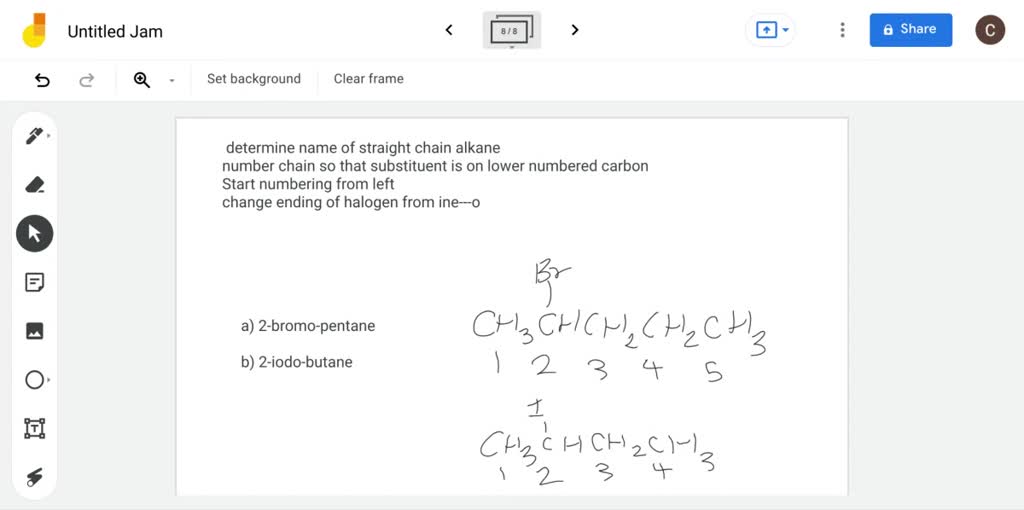 Untitled Jam
8 / 8
Share
C
Set background
Clear frame
determine name of straight chain alkane
number chain so that substituent is on lower numbered carbon
Start numbering from left
change ending of halogen from ine---o
Br
a) 2-bromo-pentane
CH3CHCH2CH2CH3
1 2 3 4 5
b) 2-iodo-butane
I
CH3CHCH2CH3
1 2 3 4